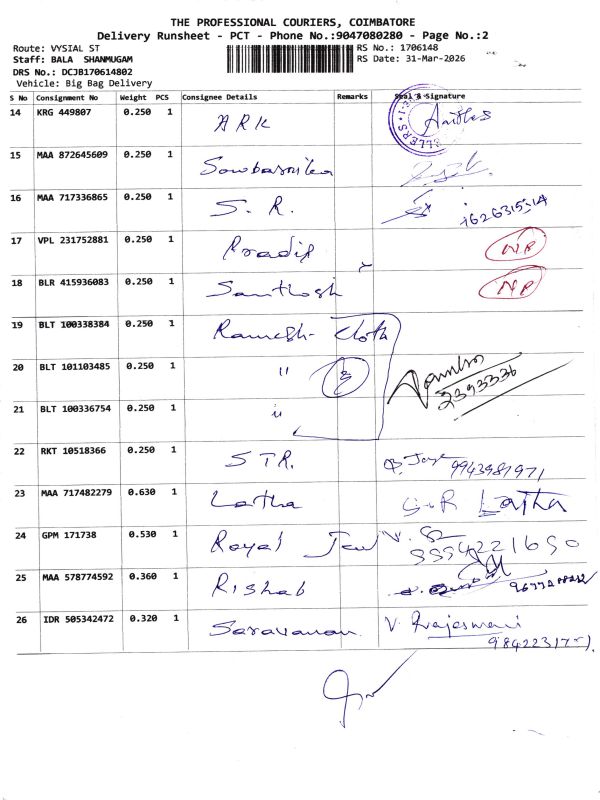 THE PROFESSIONAL COURIERS, COIMBATORE
Delivery Runsheet - PCT - Phone No.:9047080280 - Page No.:2
Route: VYSIAL ST
RS No.: 1706148
Staff: BALA SHANMUGAM
RS Date: 31-Mar-2026
DRS No.: DCJB170614802
Vehicle: Big Bag Delivery
S No Consignment No Weight PCS Consignee Details Remarks Seal & Signature
14 KRG 449807 0.250 1 ARK
15 MAA 872645609 0.250 1 Sowbarnika
16 MAA 717336865 0.250 1 S. R.
17 VPL 231752881 0.250 1 Pradip NP
18 BLR 415936083 0.250 1 Santhosh NP
19 BLT 100338384 0.250 1 Ramesh- Cloth
20 BLT 101103485 0.250 1 " 3
21 BLT 100336754 0.250 1 "
22 RKT 10518366 0.250 1 STR. 9943981971
23 MAA 717482279 0.630 1 Latha G.R Latha
24 GPM 171738 0.530 1 Royal Jew
25 MAA 578774592 0.360 1 Rishab
26 IDR 505342472 0.320 1 Saravanan V. Rajeswari